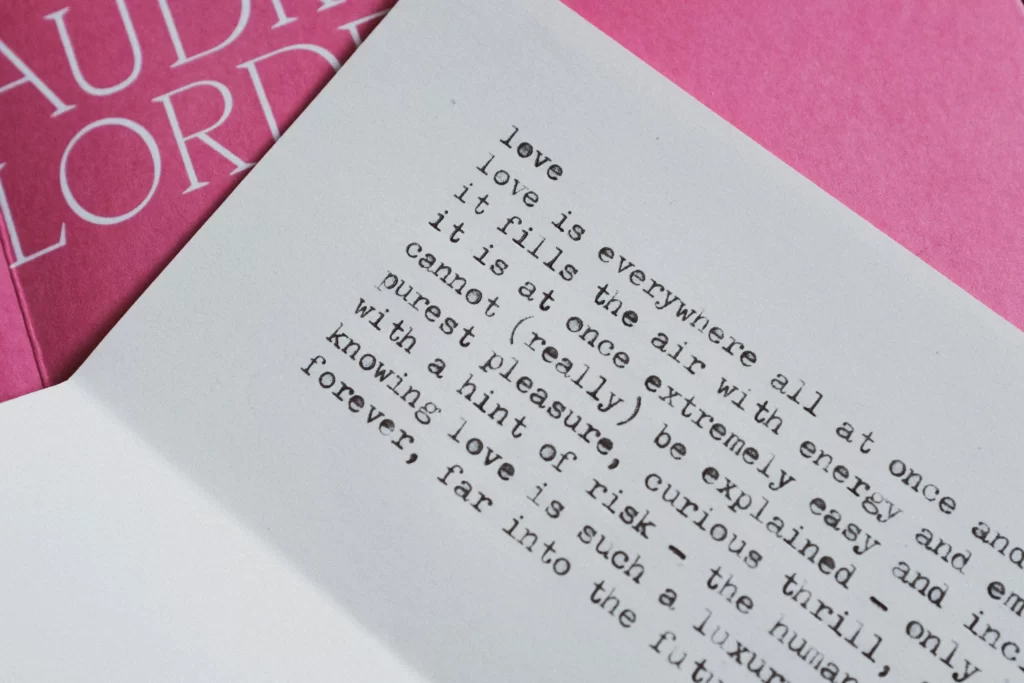 AUDR
LORDE
love
love is everywhere all at once and
it fills the air with energy and em
it is at once extremely easy and inc
cannot (really) be explained – only
purest pleasure, curious thrill,
with a hint of risk – the human
knowing love is such a luxur
forever, far into the futu